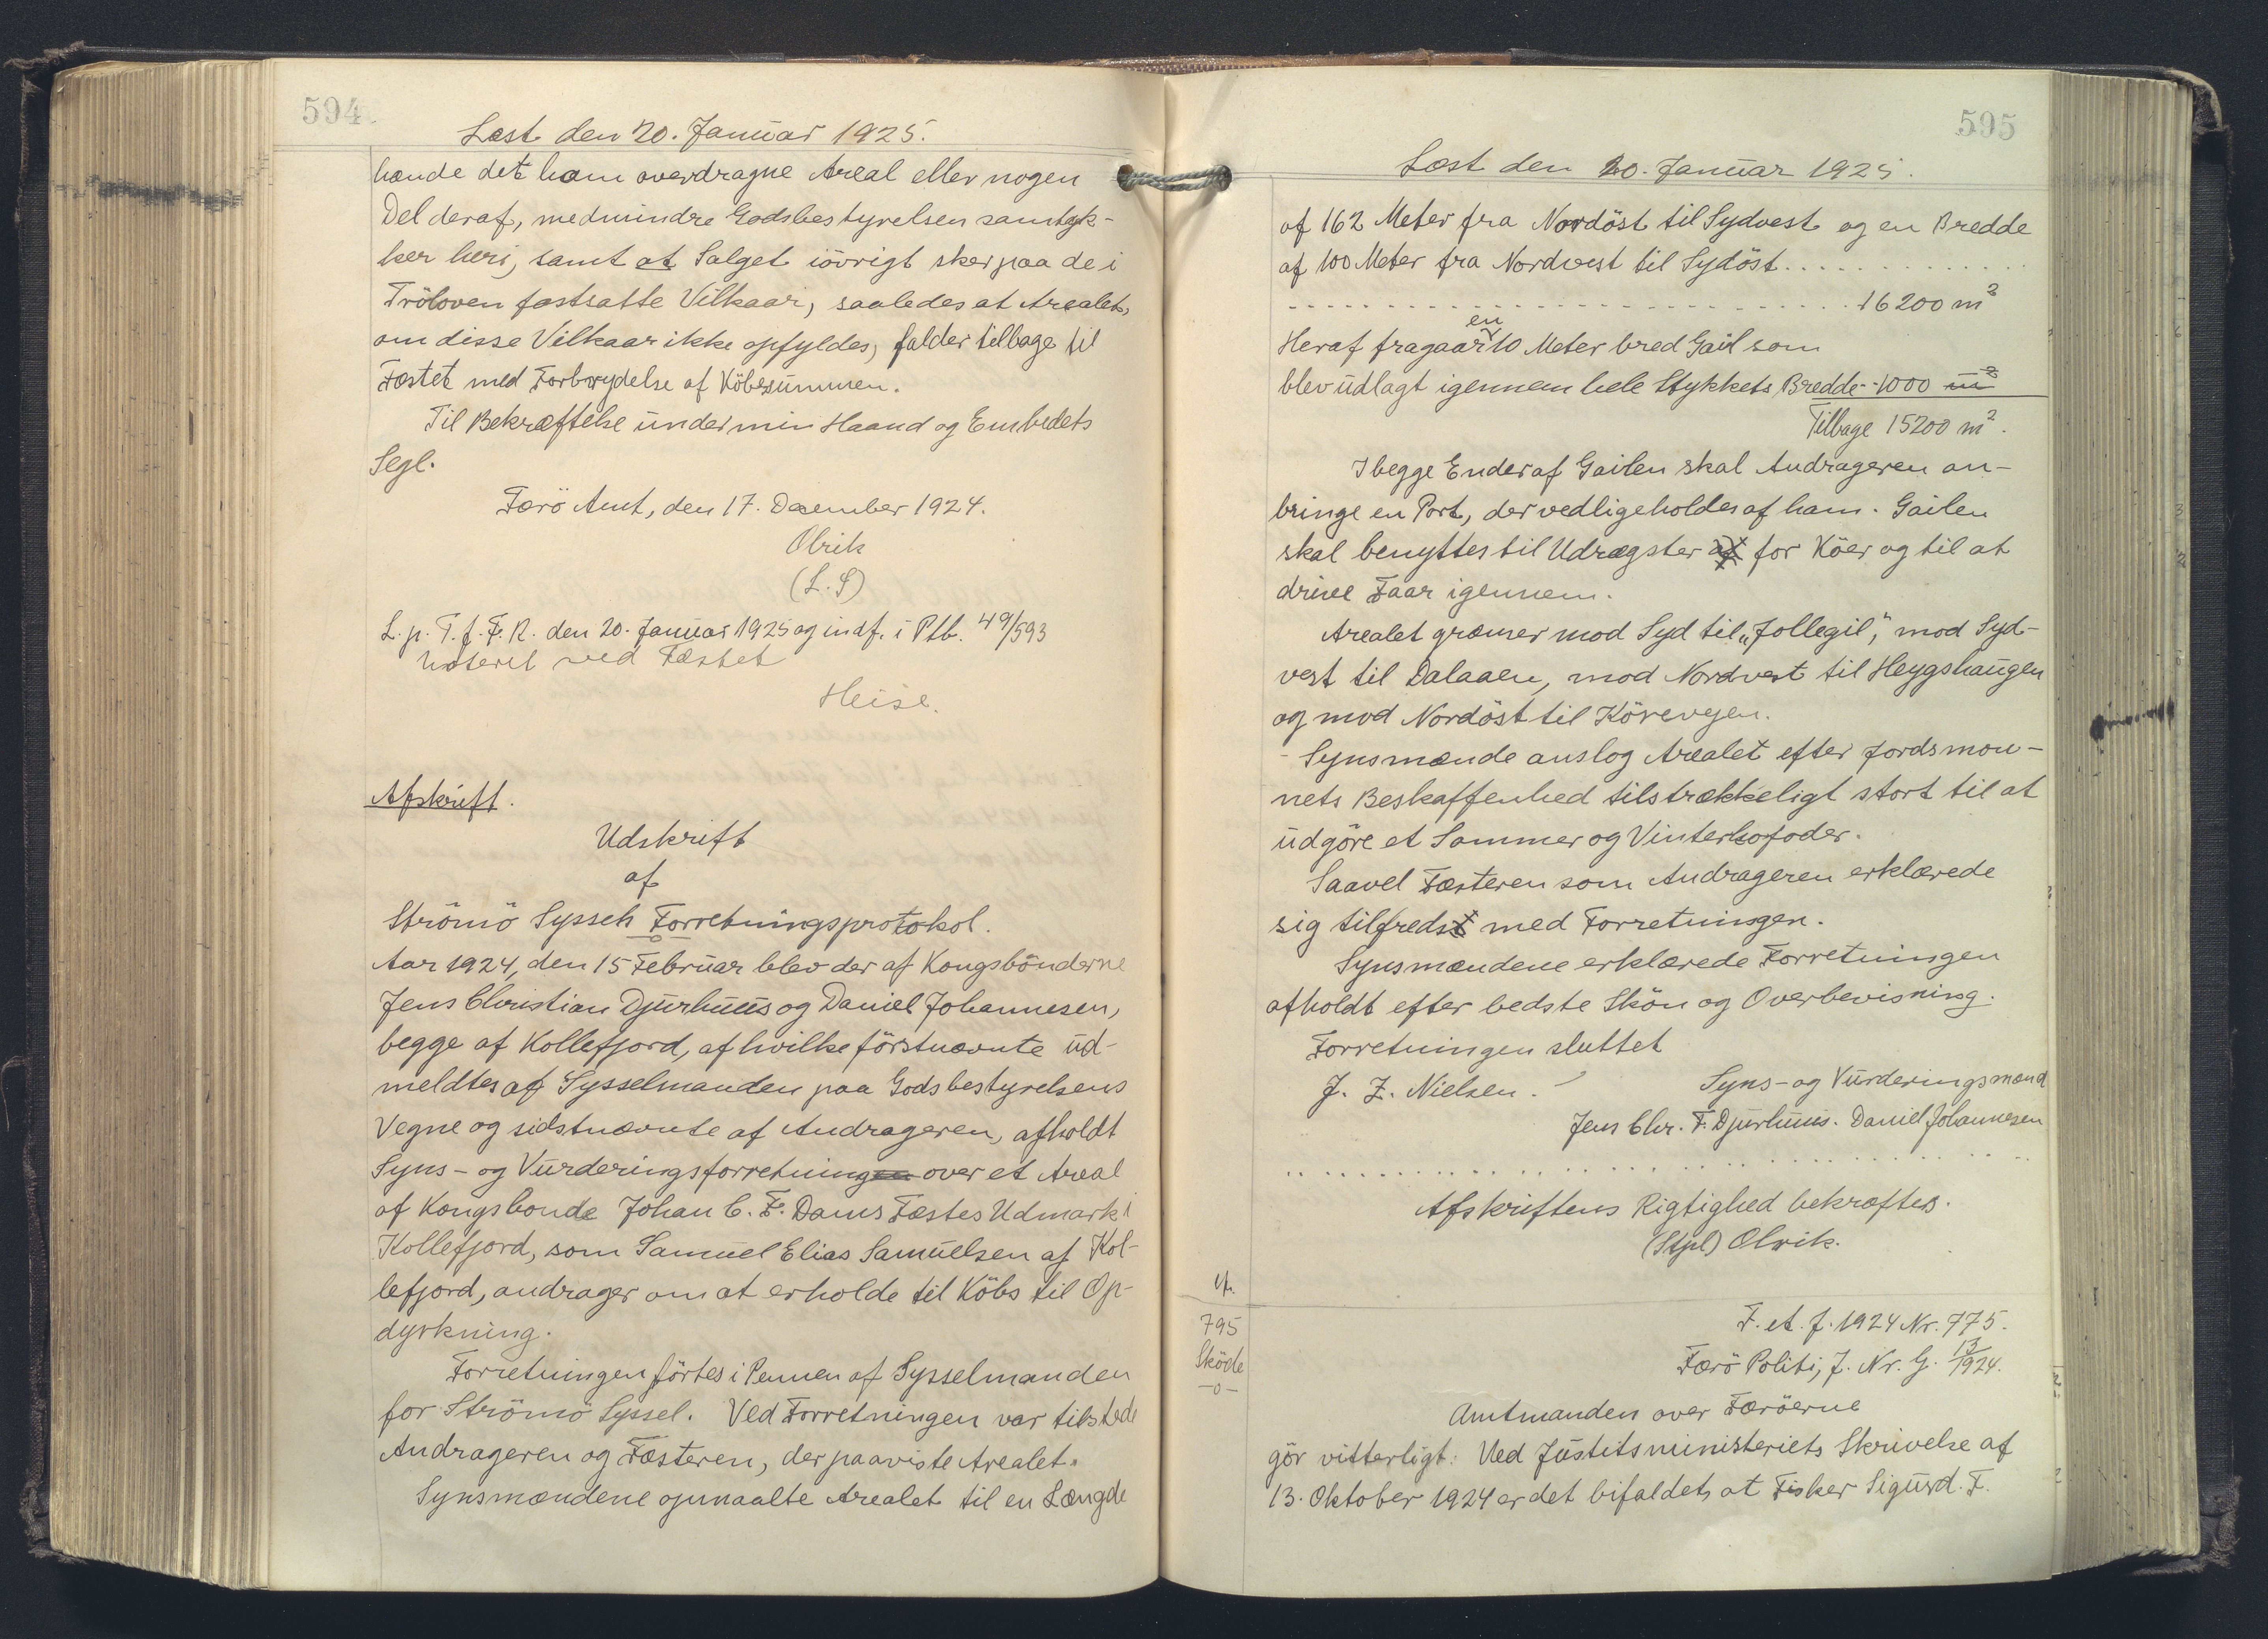 594.
Læst den 20. Januar 1925.
hænde det ham overdragne Areal eller nogen
Del deraf, medmindre Godsbestyrelsen samtyk-
ker heri, samt at Salget iövrigt sker paa de i
Tröloven fastsatte Vilkaar, saaledes at Arealet,
om disse Vilkaar ikke opfyldes, falder tilbage til
Fæstet med Forbrydelse af Köbesummen.
Til Bekræftelse under min Haand og Embedets
Segl.
Færö Amt, den 17. December 1924.
Olrik
(L.S)
L. p. T. f. F. R. den 20. Januar 1925 og indf. i Ptb. 49/593
noteret ved Fæstet
Heise.
Afskrift.
Udskrift
af
Strömö Syssels Forretningsprotokol.
Aar 1924, den 15 Februar blev der af Kongsbönderne
Jens Christian Djurhuus og Daniel Johannesen,
begge af Kollefjord, af hvilke förstnævnte ud-
meldtes af Sysselmanden paa Godsbestyrelsens
Vegne og sidstnævnte af Andrageren, afholdt
Syns- og Vurderingsforretningen over et Areal
af Kongsbonde Johan C. F. Dams Fæstes Udmark i
Kollefjord, som Samuel Elias Samuelsen af Kol-
lefjord, andrager om at erholde til Köbs til Op-
dyrkning.
Forretningen förtes i Pennen af Sysselmanden
for Strömö Syssel. Ved Forretningen var tilstede
Andrageren og Fæsteren, der paaviste Arealet.
Synsmændene opmaalte Arealet til en Længde
595
Læst den 20. Januar 1925.
af 162 Meter fra Nordöst til Sydvest og en Bredde
af 100 Meter fra Nordvest til Sydöst..............
16200 m2
en
Heraf fragaar 10 Meter bred Gail som
blev udlagt igennem hele Stykkets Bredde - 1000 m2
Tilbage 15200 m2.
I begge Ender af Gailen skal Andrageren an-
bringe en Port, der vedligeholdes af ham. Gailen
skal benyttes til Udrægster af for Köer og til at
drive Faar igennem.
Arealet grænser mod Syd til „Jollegil", mod Syd-
vest til Dalaaen, mod Nordvest til Heygshaugen
og mod Nordöst til Körevejen.
- Synsmænde anslog Arealet efter Jordsmon-
nets Beskaffenhed tilstrækkeligt stort til at
udgöre et Sommer og Vinterkofoder.
Saavel Fæsteren som Andrageren erklærede
sig tilfredst med Forretningen.
Synsmændene erklærede Forretningen
afholdt efter bedste Skön og Overbevisning.
Forretningen sluttet
J. Z. Nielsen. Syns- og Vurderingsmænd
Jens Chr. F. Djurhuus. Daniel Johannesen
Afskriftens Rigtighed bekræftes.
(Stpl) Olrik.
795
Sköde
-o-
F. et. f. 1924 Nr. 775.
Færö Politi, J. Nr. G. 13/1924.
Amtmanden over Færöerne
gör vitterligt: Ved Justitsministeriets Skrivelse af
13. Oktober 1924 er det bifaldet, at Fisker Sigurd. F.